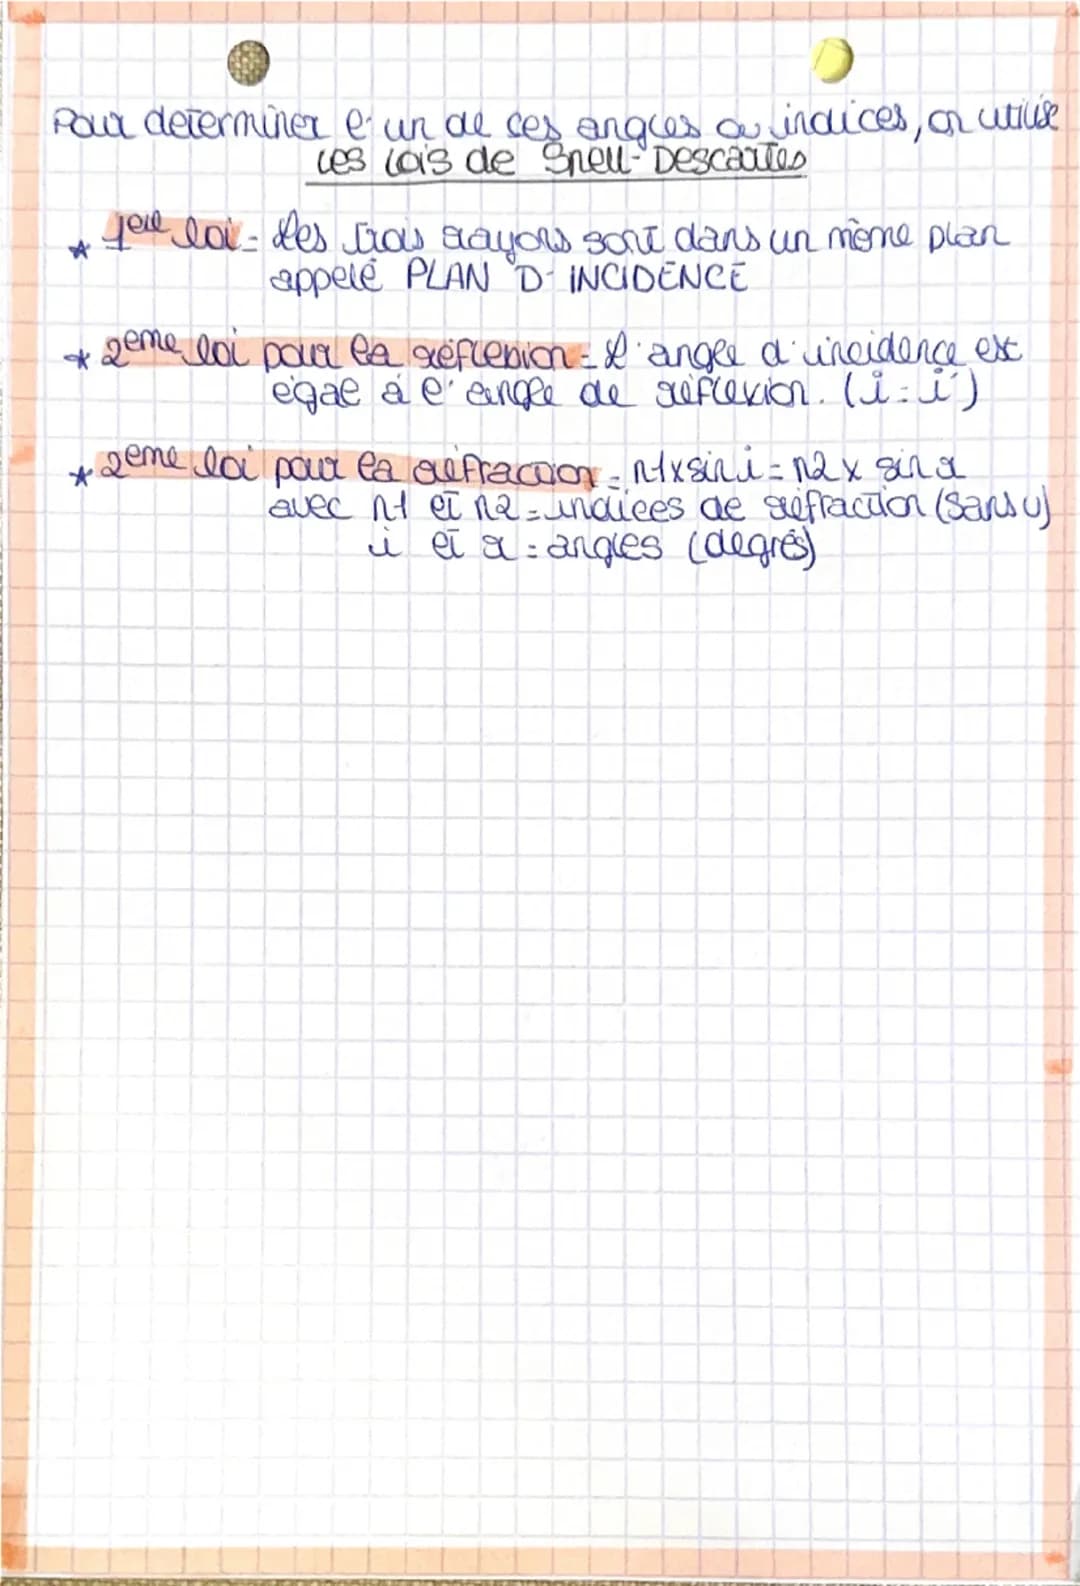 Pour determiner l'un de ces angles ou indices, on utilise
les lois de Snell-Descartes
* 1ere loi = Les trois rayons sont dans un même plan
appelé PLAN D'INCIDENCE
* 2eme loi pour la réflexion = L'angle d'incidence est
égal à l'angle de réflexion. (i=i')
* 2eme loi pour la réfraction = n1 x sin i = n2 x sin r
avec n1 et n2 = indices de réfraction (sans u)
i et r = angles (degrés)